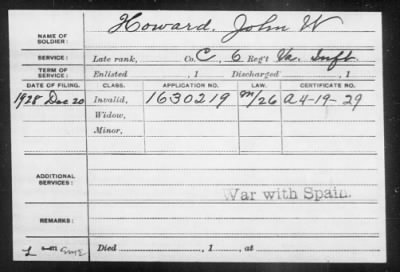 NAME OF SOLDIER: Howard, John W
SERVICE: Late rank, Co. C, 6 Reg't Va. Inft
TERM OF SERVICE: Enlisted , 1 Discharged , 1
DATE OF FILING. CLASS. APPLICATION NO. LAW. CERTIFICATE NO.
1928 Dec 20 Invalid, 1630219 M/26 A 4-19-29
Widow,
Minor,
ADDITIONAL SERVICES:
War with Spain.
REMARKS:
Died , 1 , at